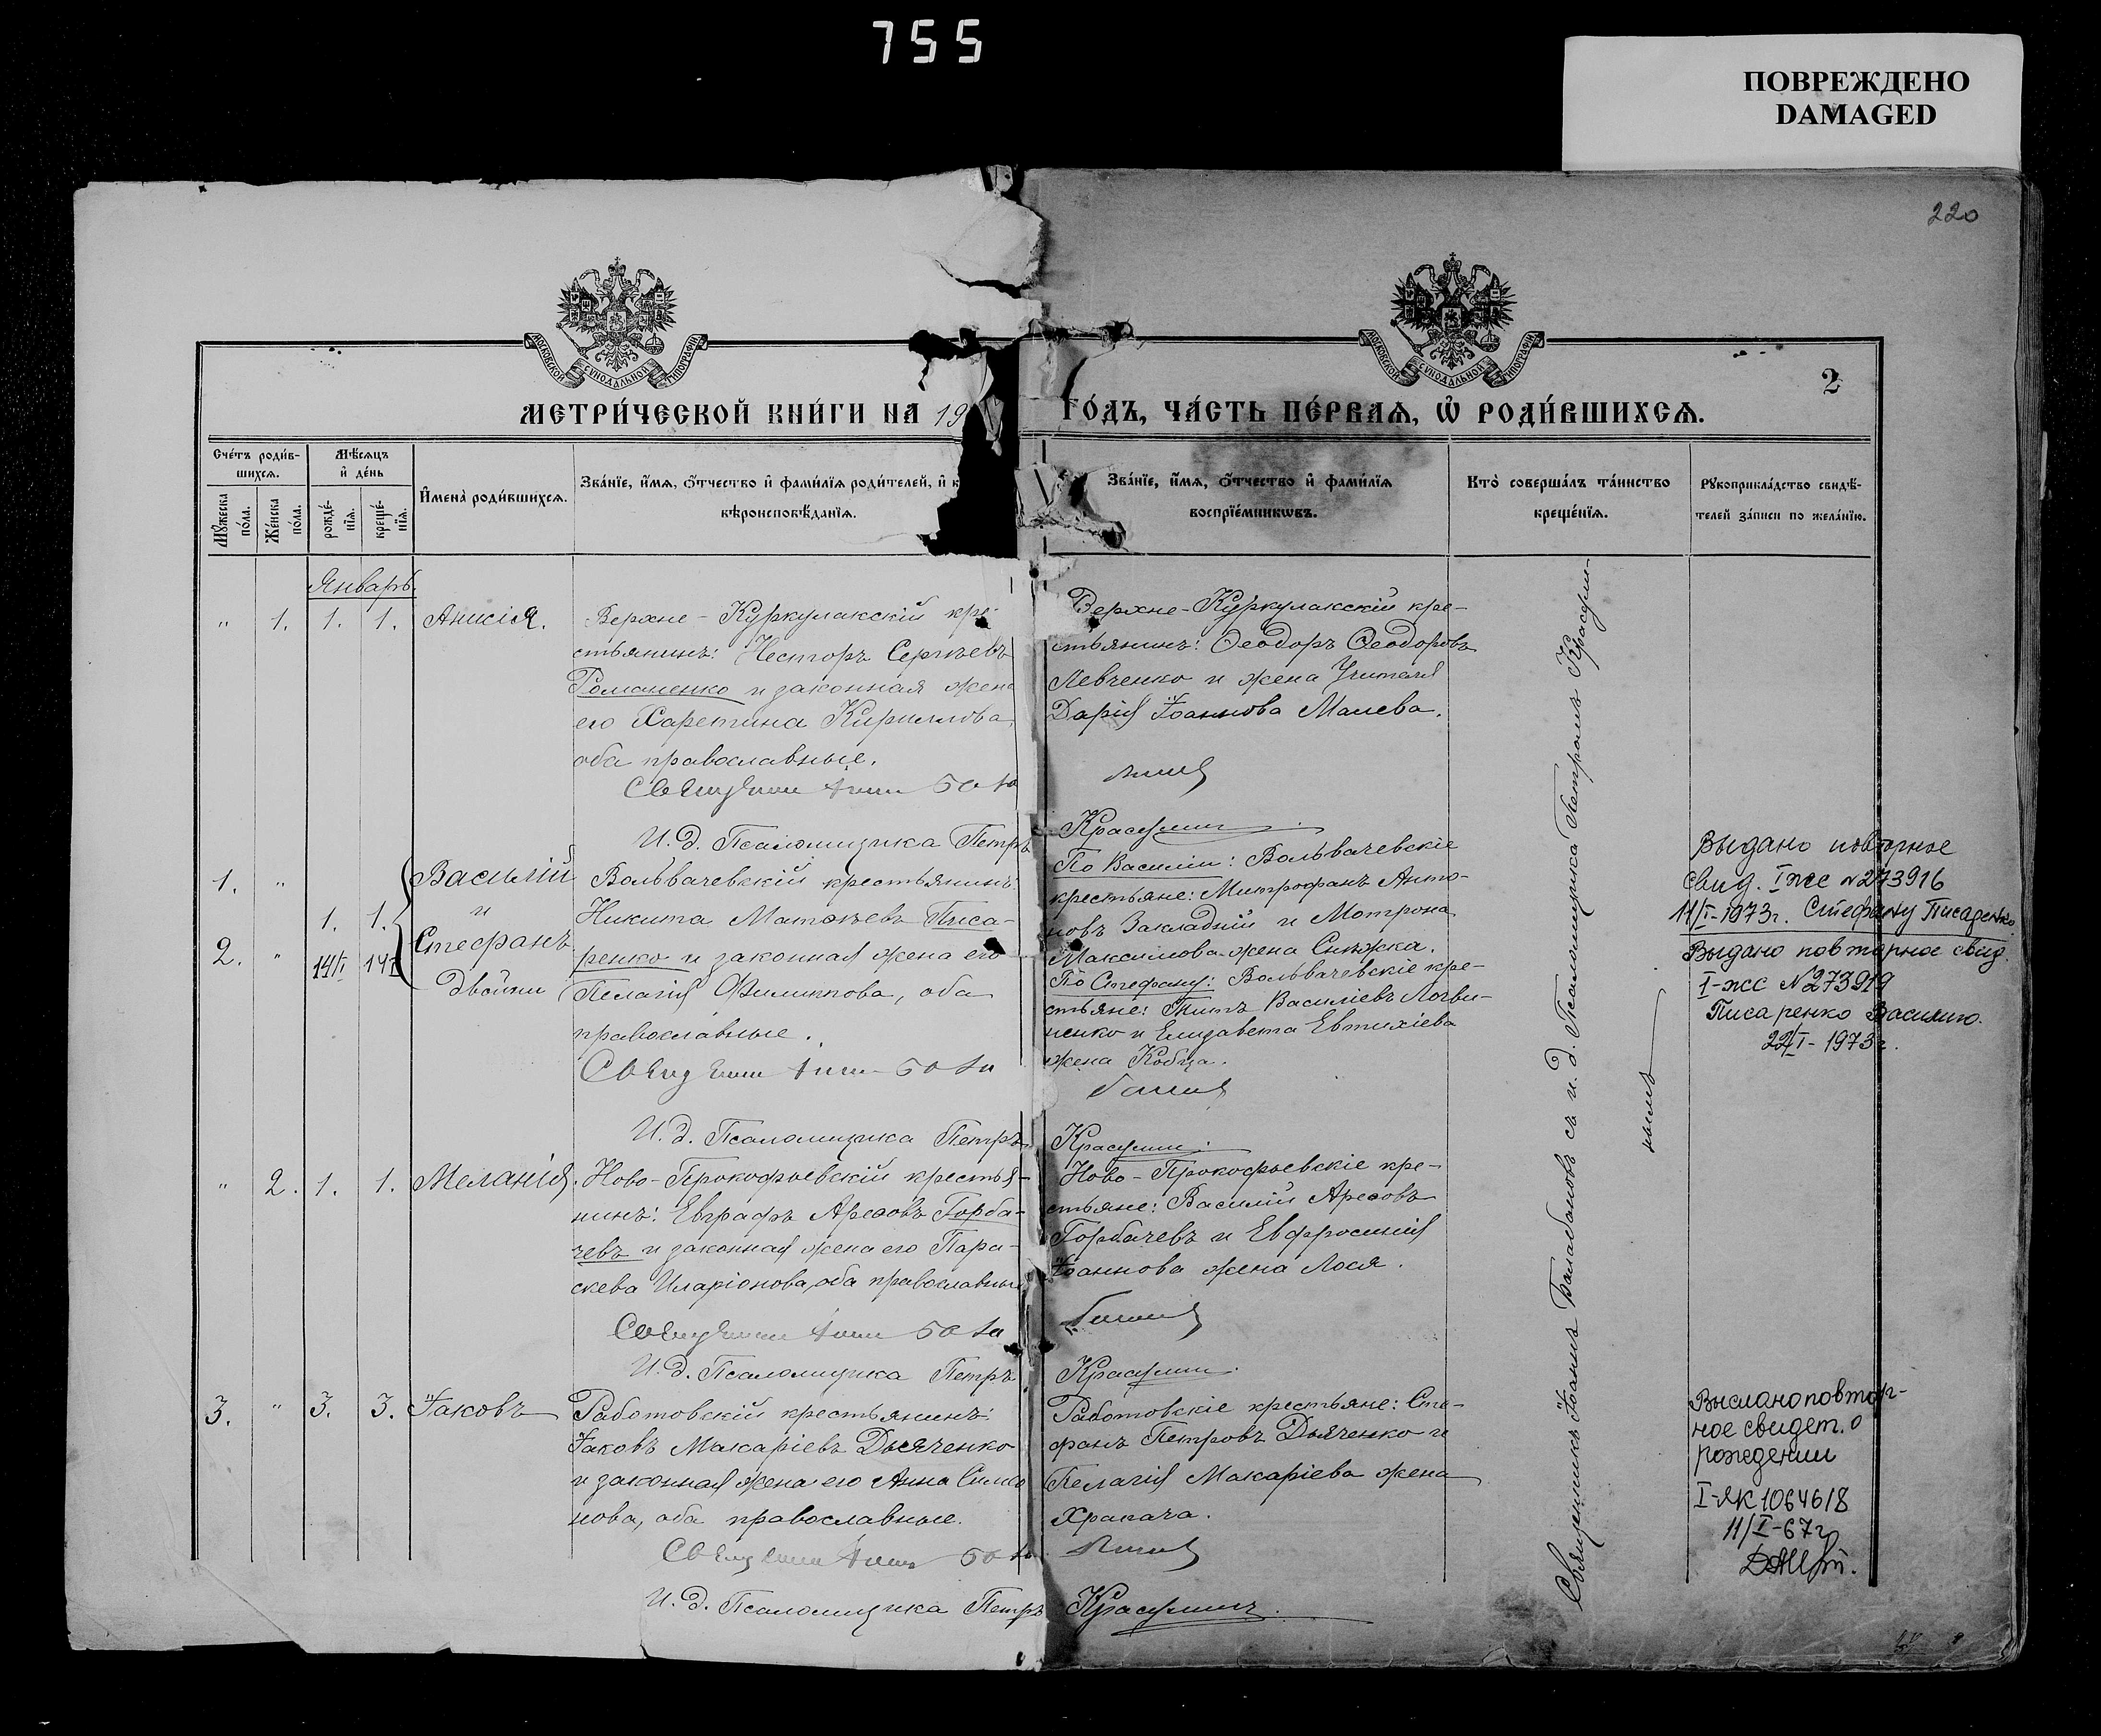 755
ПОВРЕЖДЕНО
DAMAGED
220
МОСКОВСКОЙ СѴНОДАЛЬНОЙ ТИПОГРАФІИ
МОСКОВСКОЙ СѴНОДАЛЬНОЙ ТИПОГРАФІИ
2
МЕТРИ́ЧЕСКОЙ КНИ́ГИ НА 19
ГО́ДЪ, ЧА́СТЬ ПЕ́РВАѦ, Ѡ҆ РОДИ́ВШИХСѦ.
Сче́тъ роди́в-
шихсѧ.
Мꙋ́жеска по́ла.
Же́нска по́ла.
Мѣ́сѧцъ
и҆ де́нь
рожде́-
нїѧ.
креще́-
нїѧ.
И҆мена̀ роди́вшихсѧ.
Зва́нїе, и҆́мѧ, ѻ҆́тчество и҆ фами́лїѧ роди́телей, и҆ к
вѣроисповѣ́данїѧ.
Зва́нїе, и҆́мѧ, ѻ҆́тчество и҆ фами́лїѧ
воспрїе́мникѡвъ.
Кто̀ соверша́лъ та́инство
креще́нїѧ.
Рꙋкоприкла́дство свидѣ́-
телей за́писи по жела́нїю.
Январь.
" 1. 1. 1. Анисія.
Верхне-Куркулакскій кре-
стьянинъ: Несторъ Сергѣевъ
Романенко и законная жена
его Харетина Кириллова,
оба православные.
И.д. Псаломщика Петръ
Верхне-Куркулакскій кре-
стьянинъ: Ѳеодоръ Ѳеодоровъ
Левченко и жена Учителя
Дарія Іоаннова Малева.
Красулин
1. "
2. "
1. 1.
14/I 14/I
Василій
и
Стефанъ
двойни
Вольвачевскій крестьянинъ:
Никита Матѳѣевъ Писа-
ренко и законная жена его
Пелагія Филиппова, оба
православные.
И.д. Псаломщика Петръ
По Василіи: Вольвачевскіе
крестьяне: Митрофанъ Анто-
новъ Закладній и Мотрона
Максимова жена Снѣжка.
По Стефану: Вольвачевскіе кре-
стьяне: Титъ Василіевъ Логви-
ненко и Елизавета Евтихіева
жена Кобца.
Красулин
Выдано повторное
свид. I жс №273916
11/I-1973г. Стефану Писаренко
Выдано повторное свид.
I-жс №273919
Писаренко Василию.
22/I-1973г.
" 2. 1. 1. Меланія.
Ново-Прокофьевскій крестья-
нинъ: Евграфъ Арефовъ Горба-
чевъ и законная жена его Пара-
скева Иларіонова, оба православные
И.д. Псаломщика Петръ
Ново-Прокофьевскіе кре-
стьяне: Василій Арефовъ
Горбачевъ и Евфросинія
Іоаннова жена Лося.
Красулин.
3. " 3. 3. Іаковъ
Работовскій крестьянинъ:
Іаковъ Макаріевъ Дьяченко
и законная жена его Анна Симо
нова, оба православные.
И.д. Псаломщика Петръ
Работовскіе крестьяне: Сте-
фанъ Петровъ Дьяченко и
Пелагія Макаріева жена
Храпача.
Красулинъ.
Священникъ Іоаннъ Балабановъ съ и.д. Псаломщика Петромъ Красули-
нымъ
Выслано повтор-
ное свидет. о
рождении
I-ЯК 1064618
11/I-67г